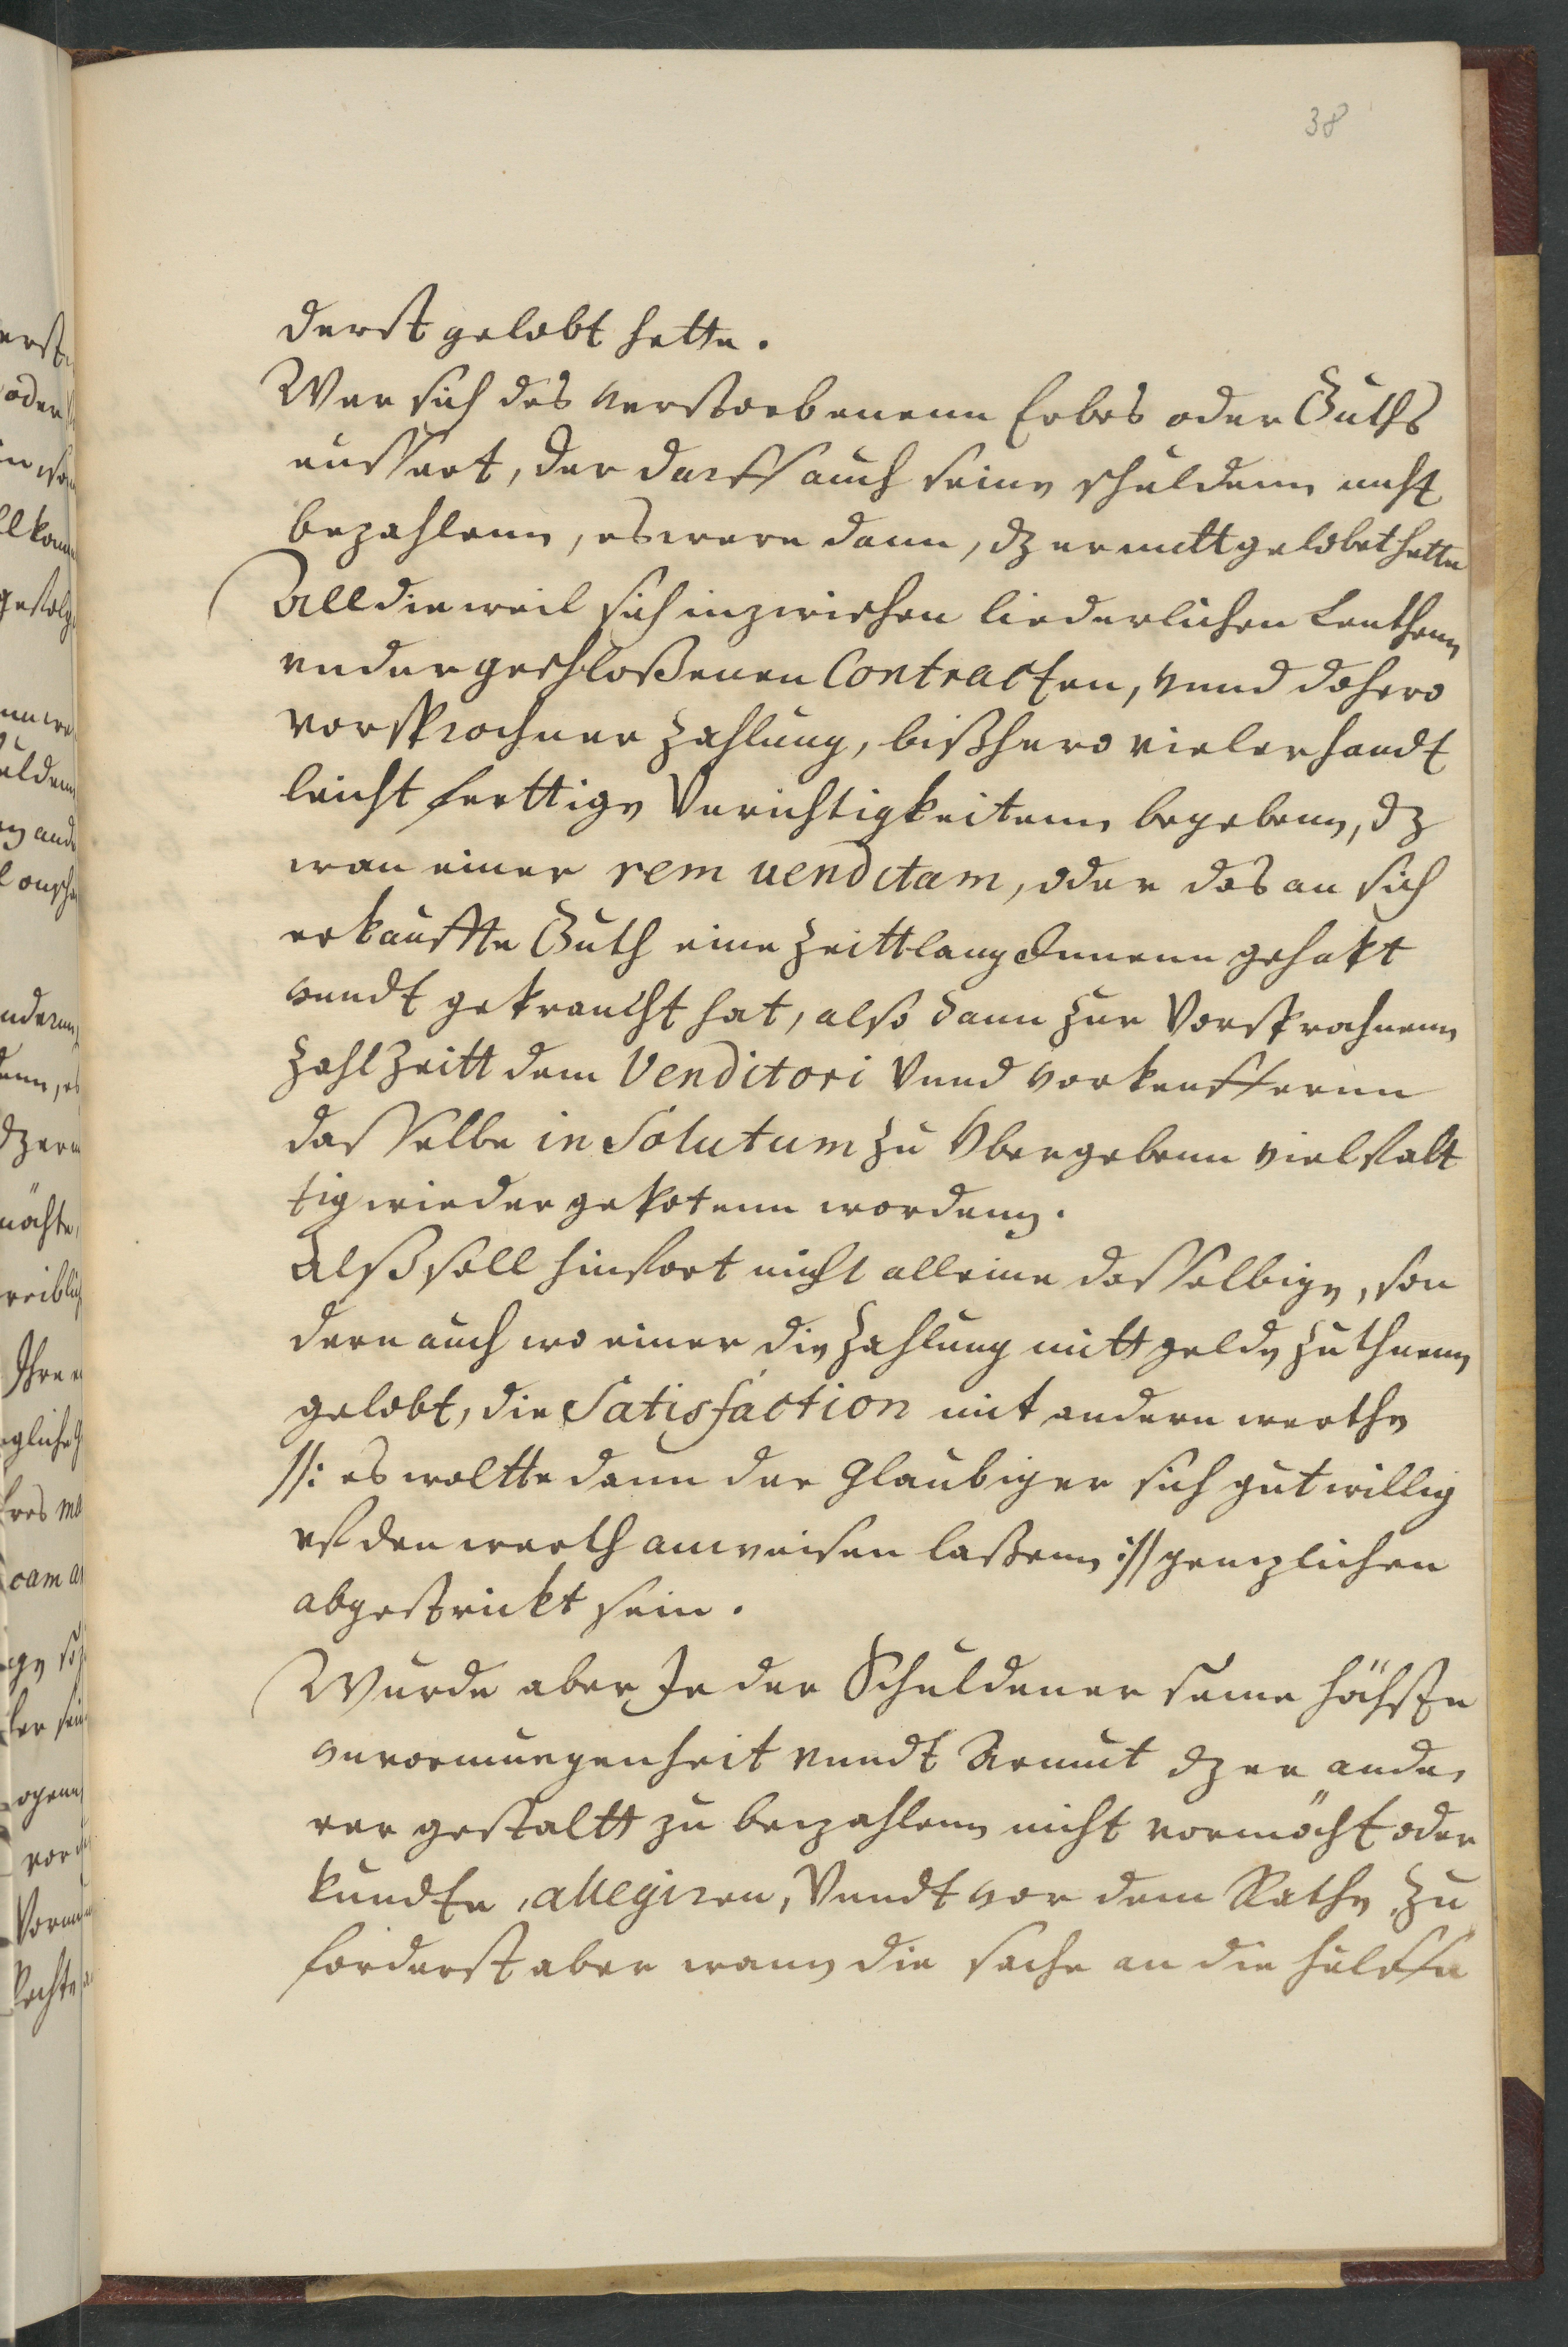 38
derst gelobt hette.
Wer sich des verstorbenenn Erbes oder Guths
eussert, der darff auch seine schuldenn nicht
bezahlenn, es were dann, dz er mitt gelobet hette
All dieweil sich inzwischen liederlichen Leuthenn
vnder geschloßenen Contracten, vnnd dahero
vorsprochner Zahlung, bißhero vielerhandt
leichtferttige Vnrichtigkeitenn begebenn, dz
wan einer rem uenditam, oder das an sich
erkauffte Guth eine Zeittlang Innenn gehabt
vnndt gebraucht hat, also dann zur Vorsprochnenn
Zahl Zeitt dem Venditori Vnnd vorkeuffernn
dasselbe in Solutum zu Vbergebenn vielfalt
tig wieder gebotenn wordenn.
Alß soll hinfort nicht alleine dasselbige, son
dern auch wo einer die Zahlung mitt gelde zuthuenn
gelobt, die Satisfaction mit andern werthe
//: es woltte dann der Glaubiger sich gutwillig
vf den werth anweisen laßenn :// gentzlichen
abgestrickt sein.
Wurde aber Je der Schuldener seine höchste
vnvormuegenheit vnndt Armut dz er ande,
rer gestaltt zu bezahlenn nicht vormöcht oder
kundte, allegiren, Vnndt vor dem Rathe zu
forderst aber wann die sache an die hülffe